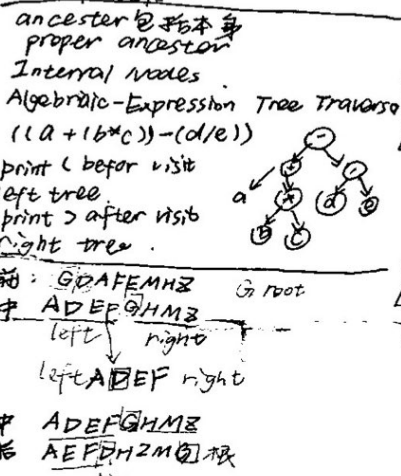 ancester包括本身
proper ancestor
Internal Nodes
Algebriaic-Expression Tree Traversa
((a+(b*c))-(d/e))
print ( befor visit
left tree
print ) after visit
right tree.
-
+
a
*
d
e
B
C
前: GDAFEMHZ
G root
中 ADEFGHMZ
left right
left ADEF right
中 ADEFGHMZ
后 AEFDHZMG 根